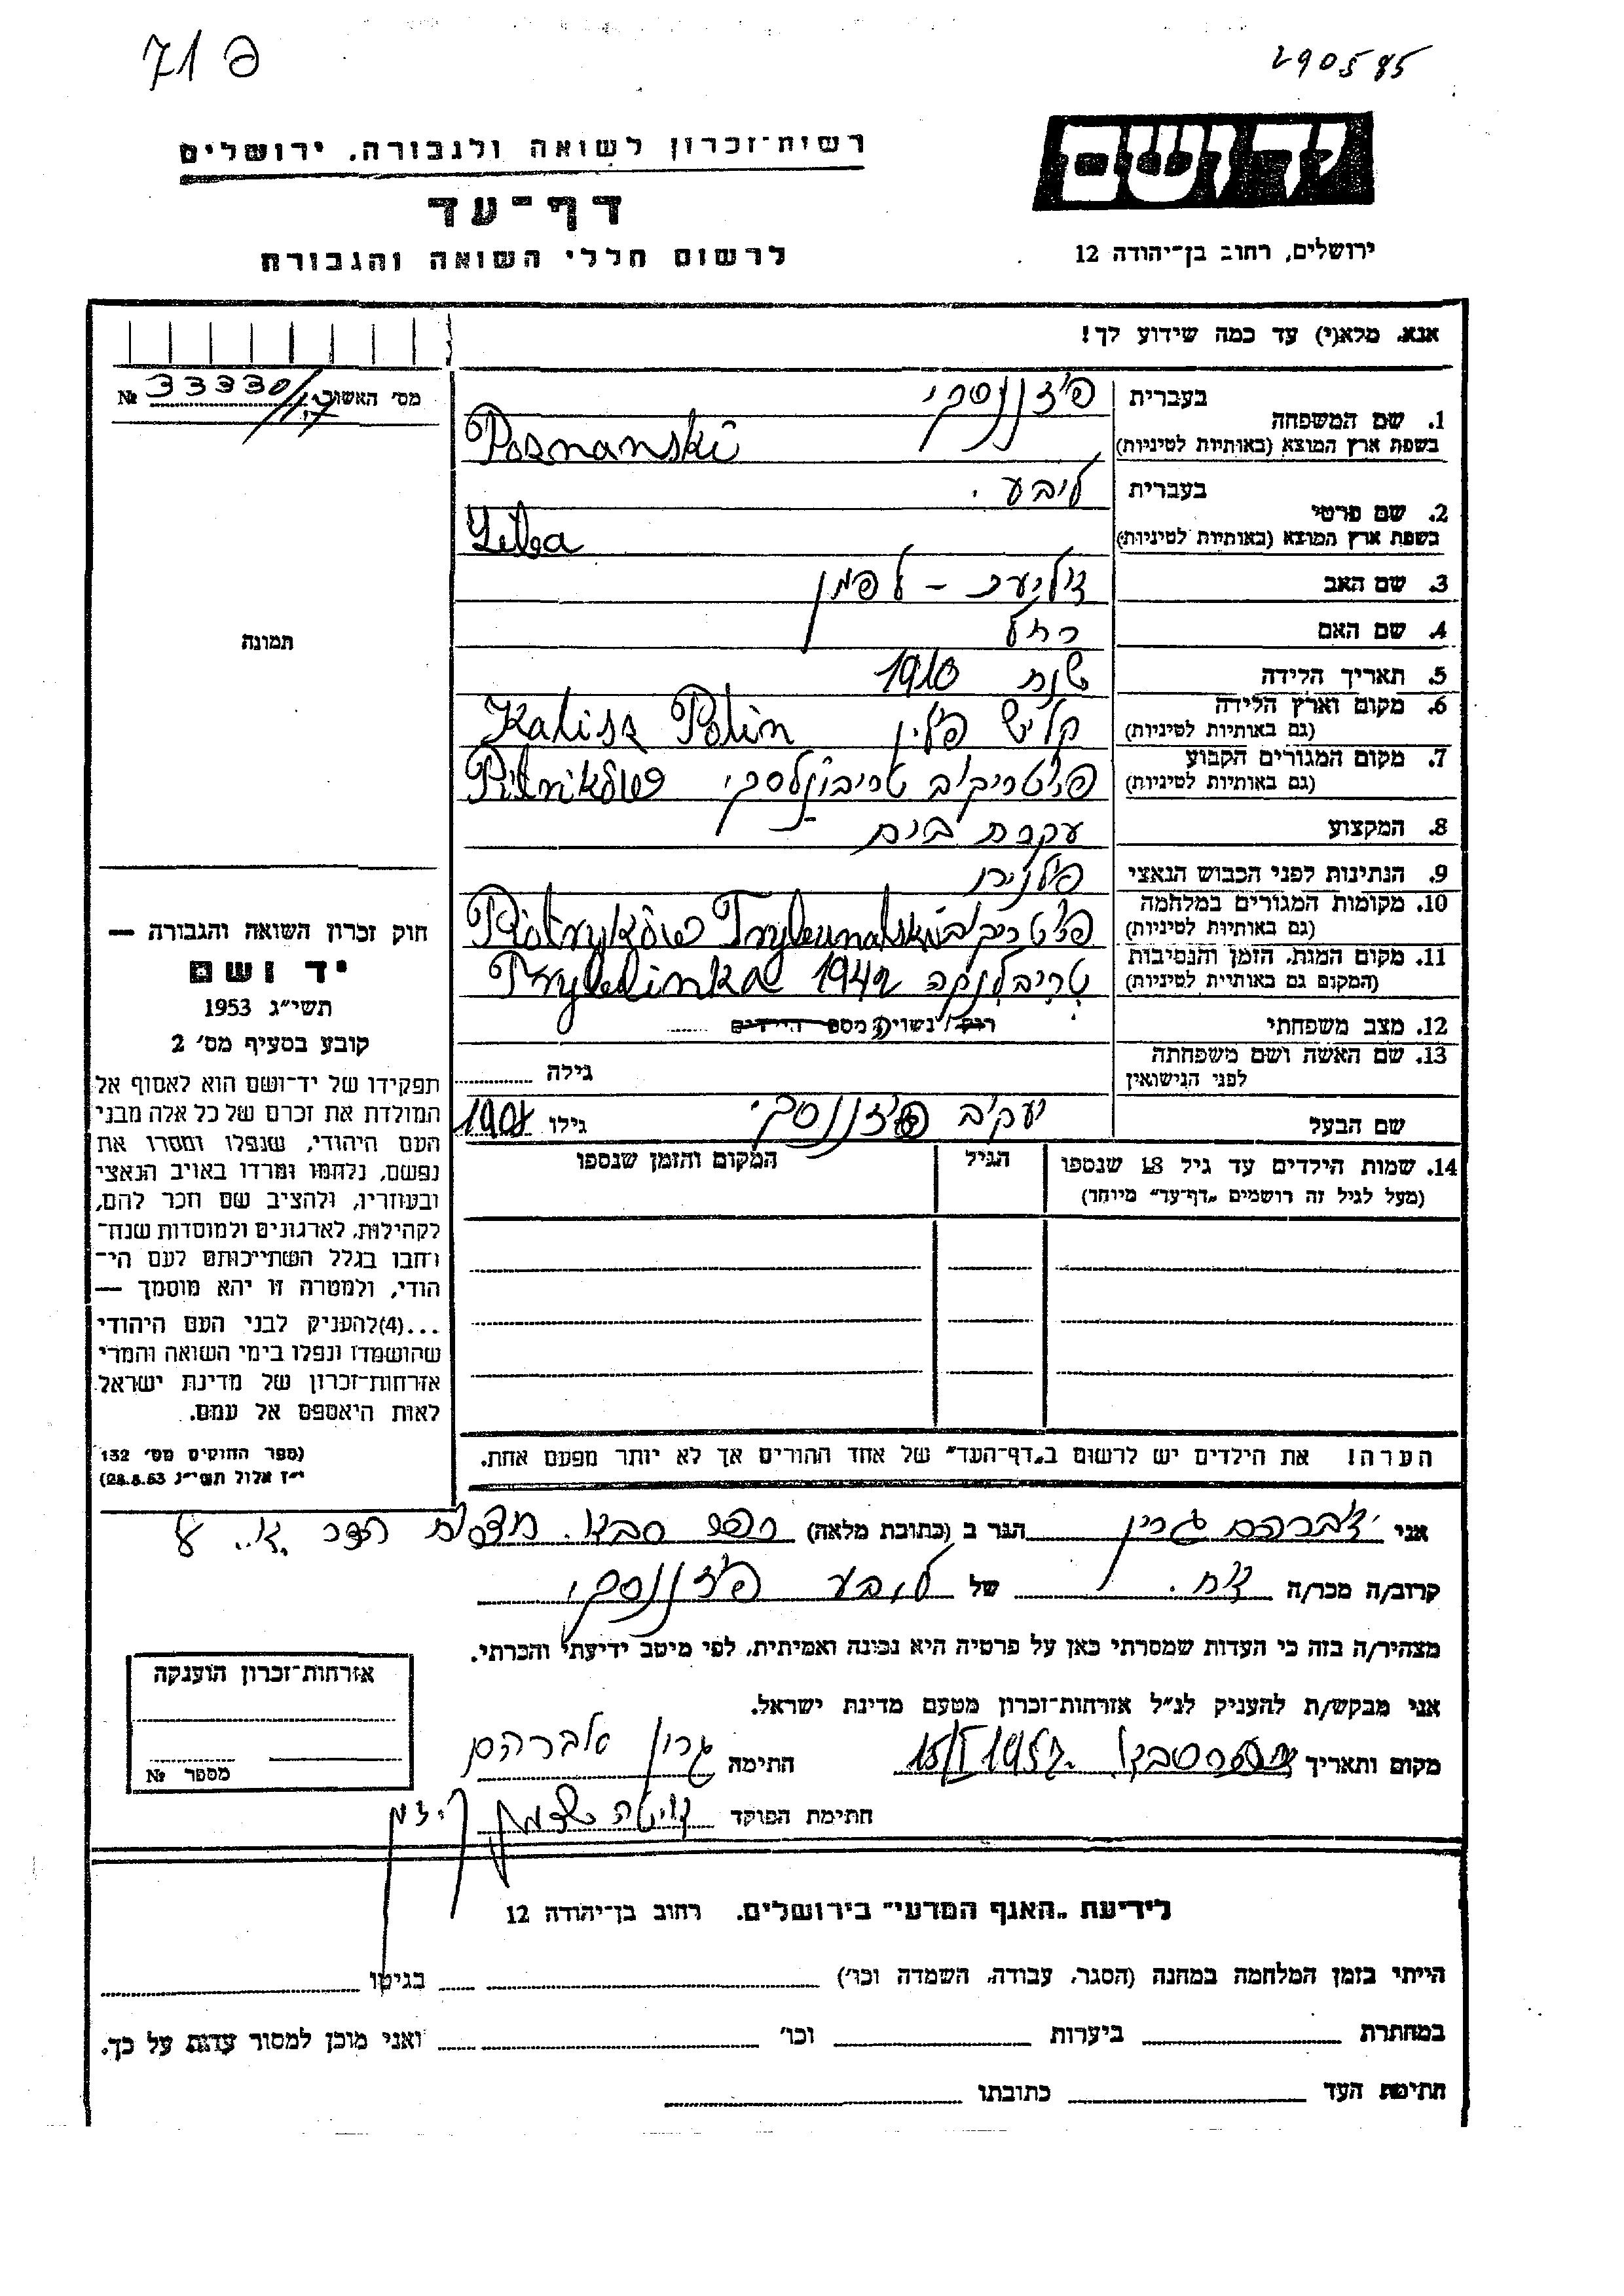 71 פ
290585
יד ושם
רשות־זכרון לשואה ולגבורה. ירושלים
דף־עד
לרשום חללי השואה והגבורה
ירושלים, רחוב בן־יהודה 12
אנא. מלא(י) עד כמה שידוע לך!
מס׳ האשור № 33330/17
1. שם המשפחה
בעברית פוזננסקי
בשפת ארץ המוצא (באותיות לטיניות) Poznanski
2. שם פרטי
בעברית ליבע.
בשפת ארץ המוצא (באותיות לטיניות) Liba
3. שם האב
4. שם האם רחל
5. תאריך הלידה שנת 1910
6. מקום וארץ הלידה (גם באותיות לטיניות) קליש פולין Kalisz Polin
7. מקום המגורים הקבוע (גם באותיות לטיניות) פיוטריקוב טריבונלסקי
8. המקצוע עקרת בית
9. הנתינות לפני הכבוש הנאצי
10. מקומות המגורים במלחמה (גם באותיות לטיניות) פיוטריקוב Piotryków Trybunalski
11. מקום המות. הזמן והנסיבות (המקום גם באותיית לטיניות) טריבלינקה 1942 Tryblinka
12. מצב משפחתי רוק/נשוי/ה מספר הילדים
13. שם האשה ושם משפחתה לפני הנישואין גילה
שם הבעל יעקוב פוזננסקי גילו 1908
14. שמות הילדים עד גיל 18 שנספו
(מעל לגיל זה רושמים „דף־עד״ מיוחד)
הגיל
המקום והזמן שנספו
הערה! את הילדים יש לרשום ב„דף־העד״ של אחד ההורים אך לא יותר מפעם אחת.
תמונה
חוק זכרון השואה והגבורה —
יד ושם
תשי״ג 1953
קובע בסעיף מס׳ 2
תפקידו של יד־ושם הוא לאסוף אל
המולדת את זכרם של כל אלה מבני
העם היהודי, שנפלו ומסרו את
נפשם, נלחמו ומרדו באויב הנאצי
ובעוזריו, ולהציב שם וזכר להם,
לקהילות, לארגונים ולמוסדות שנח־
רחבו בגלל השתייכותם לעם הי־
הודי, ולמטרה זו יהא מוסמך —
...(4)להעניק לבני העם היהודי
שהושמדו ונפלו בימי השואה והמרי
אזרחות־זכרון של מדינת ישראל
לאות היאספם אל עמם.
(ספר החוקים מס׳ 132
י״ז אלול תשי״ג 28.8.53)
אני אברהם גרין הגר ב (כתובת מלאה) כפר סבא.
קרוב/ה מכר/ה אח. של ליבע פוזננסקי
מצהיר/ה בזה כי העדות שמסרתי כאן על פרטיה היא נכונה ואמיתית, לפי מיטב ידיעתי והכרתי.
אני מבקש/ת להעניק לנ״ל אזרחות־זכרון מטעם מדינת ישראל.
מקום ותאריך כפר סבא 15/I 1957. חתימה גרין אברהם
חתימת הפוקד
אזרחות־זכרון הוענקה
מספר №
לידיעת „האגף המדעי״ בירושלים. רחוב בן־יהודה 12
הייתי בזמן המלחמה במחנה (הסגר, עבודה, השמדה וכו׳) בגיטו
במחתרת ביערות וכו׳ ואני מוכן למסור עדות על כך.
חתימת העד כתובתו